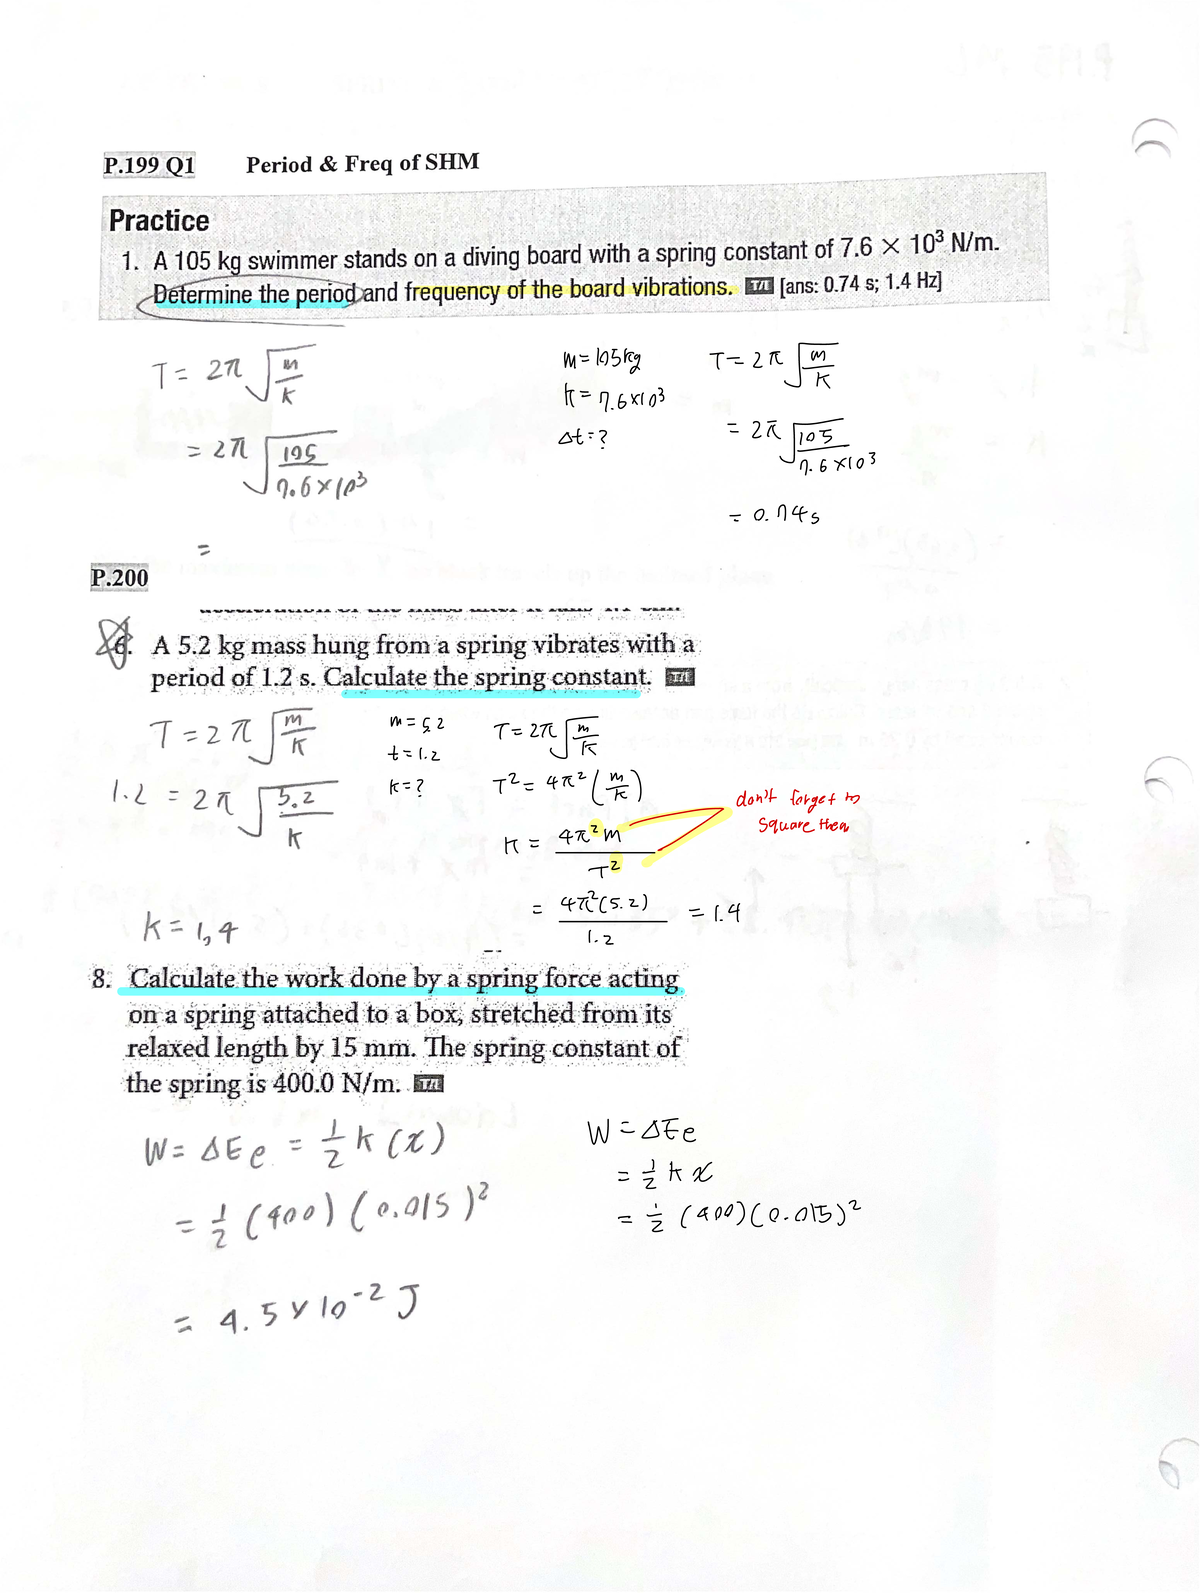 P.199 Q1 Period & Freq of SHM
Practice
1. A 105 kg swimmer stands on a diving board with a spring constant of 7.6 × 10³ N/m.
Determine the period and frequency of the board vibrations. T/I [ans: 0.74 s; 1.4 Hz]
T = 2π √(m/K)
= 2π √(105/7.6×10³)
=
m = 105kg
k = 7.6×10³
Δt = ?
T = 2π √(m/K)
= 2π √(105/7.6×10³)
= 0.74s
P.200
6. A 5.2 kg mass hung from a spring vibrates with a
period of 1.2 s. Calculate the spring constant. T/I
T = 2π √(m/K)
1.2 = 2π √(5.2/K)
K = 1,4
m = 5.2
t = 1.2
k = ?
T = 2π √(m/K)
T² = 4π² (m/K)
K = 4π²m/T²
= 4π²(5.2)/1.2 = 1.4
don't forget to
square them
8. Calculate the work done by a spring force acting
on a spring attached to a box, stretched from its
relaxed length by 15 mm. The spring constant of
the spring is 400.0 N/m. T/I
W = ΔEe = ½ k (x)
= ½ (400) (0.015)²
= 4.5 × 10⁻² J
W = ΔEe
= ½ k x
= ½ (400)(0.015)²